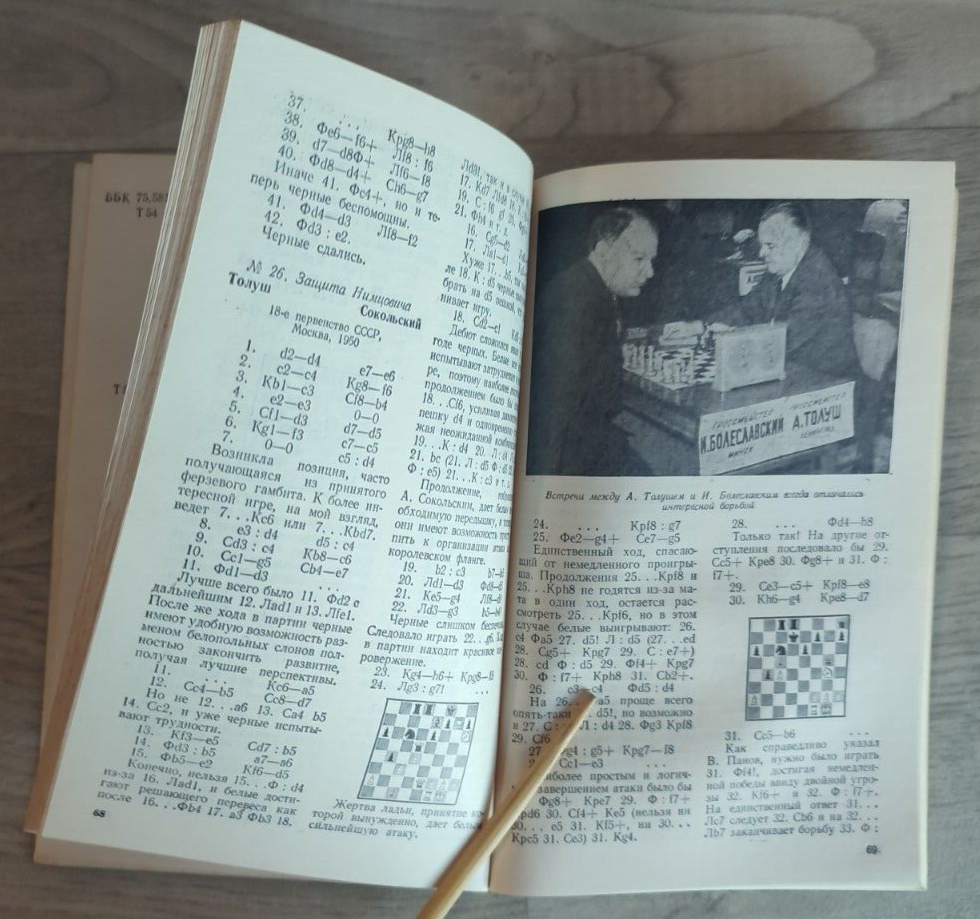 ББК 75,581
Т54
37. . . . Крg8—h8
38. Фе6—f6+ Лf8 : f6
39. d7—d8Ф+ Лf6—f8
40. Фd8—d4+ Сh6—g7
Иначе 41. Фс4+, но и те-
перь черные беспомощны.
41. Фd4—d3 Лf8—f2
42. Фd3 : e2.
Черные сдались.
№ 26. Защита Нимцовича
Толуш Сокольский
18-е первенство СССР,
Москва, 1950
1. d2—d4 e7—e6
2. c2—c4 Kg8—f6
3. Kb1—c3 Cf8—b4
4. e2—e3 0—0
5. Cf1—d3 d7—d5
6. Kg1—f3 c7—c5
7. 0—0 c5 : d4
Возникла позиция, часто
получающаяся из принятого
ферзевого гамбита. К более ин-
тересной игре, на мой взгляд,
ведет 7. . .Кс6 или 7. . .Kbd7.
8. e3 : d4 d5 : c4
9. Cd3 : c4 Kb8—c6
10. Cc1—g5 Cb4—e7
11. Фd1—d3
Лучше всего было 11. Фd2 с
дальнейшим 12. Лad1 и 13. Лfe1.
После же хода в партии черные
имеют удобную возможность раз-
меном белопольных слонов пол-
ностью закончить развитие,
получая лучшие перспективы.
11. . . . Кс6—a5
12. Сс4—b5 Сс8—d7
Но не 12. . .a6 13. Ca4 b5
14. Сс2, и уже черные испыты-
вают трудности.
13. Kf3—e5 Cd7 : b5
14. Фd3 : b5 a7—a6
15. Фb5—e2 Kf6—d5
Конечно, нельзя 15. . .Ф : d4
из-за 16. Лad1, и белые дости-
гают решающего перевеса как
после 16. . .Фb4 17. a3 Фb3 18.
68
17. Kd7
16. Cg5—d2
Хуже 17. . .b5,
ле 18. К : d5 черные
брать на d5 пешкой,
нивает игру.
18. Cd2—c1
Дебют сложился
голе черных. Белые
испытывают затруднения
ре, поэтому наиболее
продолжением было
18. . .Cf6, усиливая давление
пешку d4 и одновременно
жая неожиданной комбина
19. . .К : d4 20. Л : d4
21. bc (21. Л : d5 Ф : d5
Ф : e5) 21. . .К : c3 и т. д.
Продолжение,
А. Сокольским, дает белым
обходимую передышку, и
они имеют возможность
пить к организации атаки
королевском фланге.
19. b2 : c3
20. Лd1—d3
21. Ke5—g4
22. Лd3—g3
Черные слишком беспечны
Следовало играть 22. . .g6.
в партии находит красивое
ровержение.
23. Kg4—h6+ Kpg8—f8
24. Лg3 : g7! . . .
Жертва ладьи, принятие ко-
торой вынужденно, дает белым
сильнейшую атаку.
ГРОССМЕЙСТЕР ГРОССМЕЙСТЕР
И.БОЛЕСЛАВСКИЙ А.ТОЛУШ
МИНСК ЛЕНИНГРАД
Встречи между А. Толушем и И. Болеславским всегда отличались
интересной борьбой
24. . . . Kpf8 : g7
25. Фе2—g4+ Ce7—g5
Единственный ход, спасаю-
щий от немедленного проигры-
ша. Продолжения 25. . .Kpf8 и
25. . .Kph8 не годятся из-за ма-
та в один ход, остается рас-
смотреть 25. . .Kpf6, но в этом
случае белые выигрывают: 26.
c4 Фa5 27. d5! Л : d5 (27. . .ed
28. Cg5+ Kpg7 29. C : e7+)
28. cd Ф : d5 29. Фf4+ Kpg7
30. Ф : f7+ Kph8 31. Cb2+.
26. c3—c4 Фd5 : d4
На 26. a5 проще всего
опять-таки d5!, но возможно
и 27. C : Л : d4 28. Фg3 Kpf8
29. Cf6
27 Фg4 : g5+ Kpg7—f8
2 Cc1—e3 . . .
иболее простым и логич-
завершением атаки было бы
Фg8+ Kpe7 29. Ф : f7+
Kpd6 30. Cf4+ Ke5 (нельзя ни
30. . . e5 31. Kf5+, ни 30. . .
Kpc5 31. Ce3) 31. Kg4.
28. . . . Фd4—h8
Только так! На другие от-
ступления последовало бы 29.
Cc5+ Kpe8 30. Фg8+ и 31. Ф :
f7+.
29. Ce3—c5+ Kpf8—e8
30. Kh6—g4 Kpe8—d7
31. Cc5—b6 . . .
Как справедливо указал
В. Панов, нужно было играть
31. Фf4!, достигая немедлен-
ной победы ввиду двойной угро-
зы 32. Kf6+ и 32. Ф : f7+.
На единственный ответ 31. . .
Лc7 следует 32. Cb6 и на 32. . .
Лb7 заканчивает борьбу 33. Ф :
69